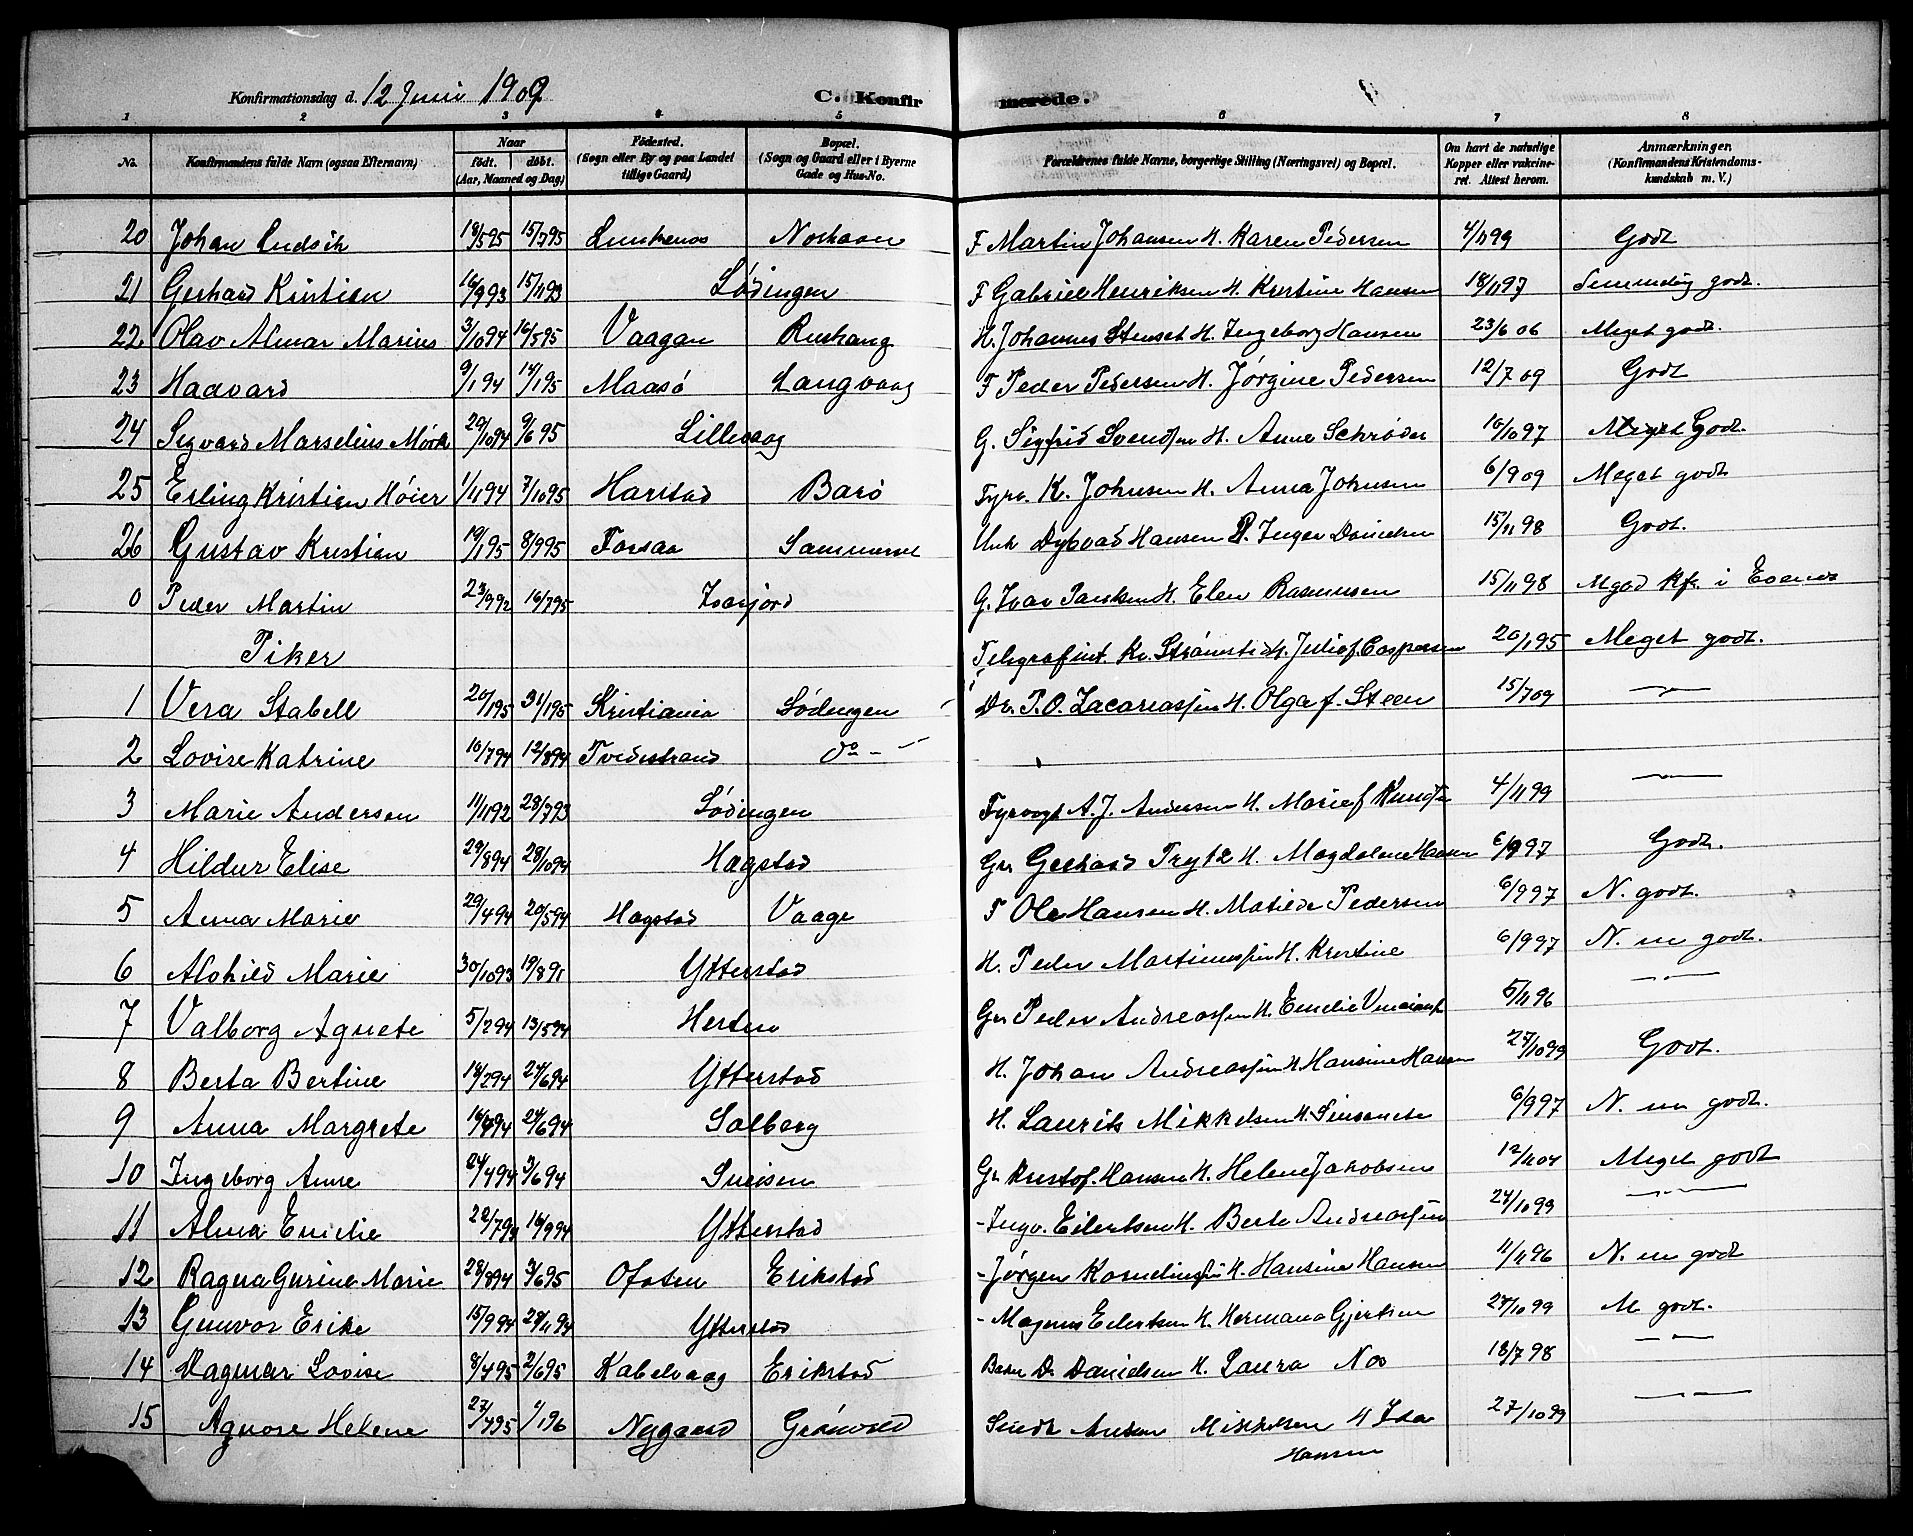 Konfirmationsdag d. 12 Juni 1909 C. Konfirmerede.
1 2 3 4 5 6 7 8
No. Konfirmandens fulde Navn (ogsaa Efternavn) Naar født. døbt. (Aar, Maaned og Dag) Födested. (Sogn eller By og paa Landet tillige Gaard) Bopæl. (Sogn og Gaard eller i Byerne Gade og Hus-No. Forældrenes fulde Navne, borgerlige Stilling (Næringsvei) og Bopæl. Om havt de naturlige Kopper eller vakcineret. Attest herom. Anmærkninger. (Konfirmandens Kristendomskundskab m. V.)
20 Johan Ludvik 18/5 95 15/7 95 F Martin Johansen H. Karen Pedersen 4/11 99 Godt
21 Gerhard Kristian 16/9 93 15/11 93 Lødingen F Gabriel Henriksen H. Kristine Hansen 18/11 97 godt.
22 Olav Almar Marius 3/10 94 16/5 95 Vaagan H. Johannes Stenset H. Ingeborg Hansen 23/6 06 Meget godt.
23 Haavard 9/1 94 Maasö Langvaag F Peder Pedersen H. Jørgine Pedersen 12/7 09 Godt
24 Sigvard Marselius Mörk 29/10 94 9/6 95 Lillevaag G. Sigfrid Svendsen H. Anne Schrøder 10/10 97 Meget Godt.
25 Erling Kristian Höier 1/11 94 7/10 95 Harstad Barö Fyrv. K. Johnsen H. Anna Johnsen 6/9 09 Meget godt
26 Gustav Kristian 19/1 95 8/9 95 Forsaa Unk Dybvad Hansen P. Inger Danielsen 15/11 98 Godt.
0 Peder Martin 23/9 92 16/7 95 G. Ivar H. Elen Rasmussen 15/11 98 Mgod Kfr. i Evenes
Piker Telegrafint. Kr. H. Julie f. Caspersen 20/1 95 Meget godt.
1 Vera Stabell 20/1 95 31/1 95 Kristiania Lödingen Dr. P. O. Zacariassen H. Olga f. Steen 15/7 09 — " —
2 Lovise Katrine 10/7 94 12/8 94 Tvedestrand do - "
3 Marie Andersen 11/11 92 28/7 93 Lödingen Fyrvogt A. J. Andersen H. Marie f. 4/11 99 — " —
4 Hildur Elise 29/8 94 28/10 94 Hægstad Gr Gerhard Trytz H. Magdalene Hansen 6/9 97 Godt.
5 Anna Marie 29/4 94 20/5 94 Hægstad Vaage F Ole Hansen H. Matilde Pedersen 6/9 97 N. godt.
6 Alohild Marie 30/10 93 Ytterstad H. Peder Martinussen H. Kristine 6/9 97 N. m godt.
7 Valborg Agnete 5/2 94 13/5 94 Gr Peder Andreassen H. Emelie 5/11 96 — " —
8 Berta Bertine 18/2 94 24/6 94 Ytterstad H. Johan Andreassen H Hansine Hansen 27/10 99 Godt.
9 Anna Margrete 16/4 94 24/6 94 Solberg H. Laurits Mikkelsen H. 6/9 97 N. m godt.
10 Ingeborg Anne 24/4 94 3/6 94 Gr Kristof. Hansen H. Helene Jakobsen 12/11 04 Meget godt
11 Alma Emelie 22/7 94 16/9 94 Ytterstad - Ingv. Eilertsen H. Berte Andreassen 27/10 99 — " —
12 Ragna Gurine Marie 28/8 94 3/6 95 Ofoten Erikstad - Jørgen Korneliussen H. Hansine Hansen 11/11 96 N. m godt
13 Gunvor Erike 15/9 94 29/11 94 Ytterstad - Magnus Eilertsen H. Hermana Gjertsen 27/10 99 M godt.
14 Dagmar Lovise 8/4 95 2/6 95 Kabelvaag Erikstad D. Danielsen H. Laura 18/7 98 — " —
15 Agnore Helene 27/4 95 1/1 96 Nygaard Grönvold Anton Mikkelsen H Ida 27/10 99 — " —
Hansen